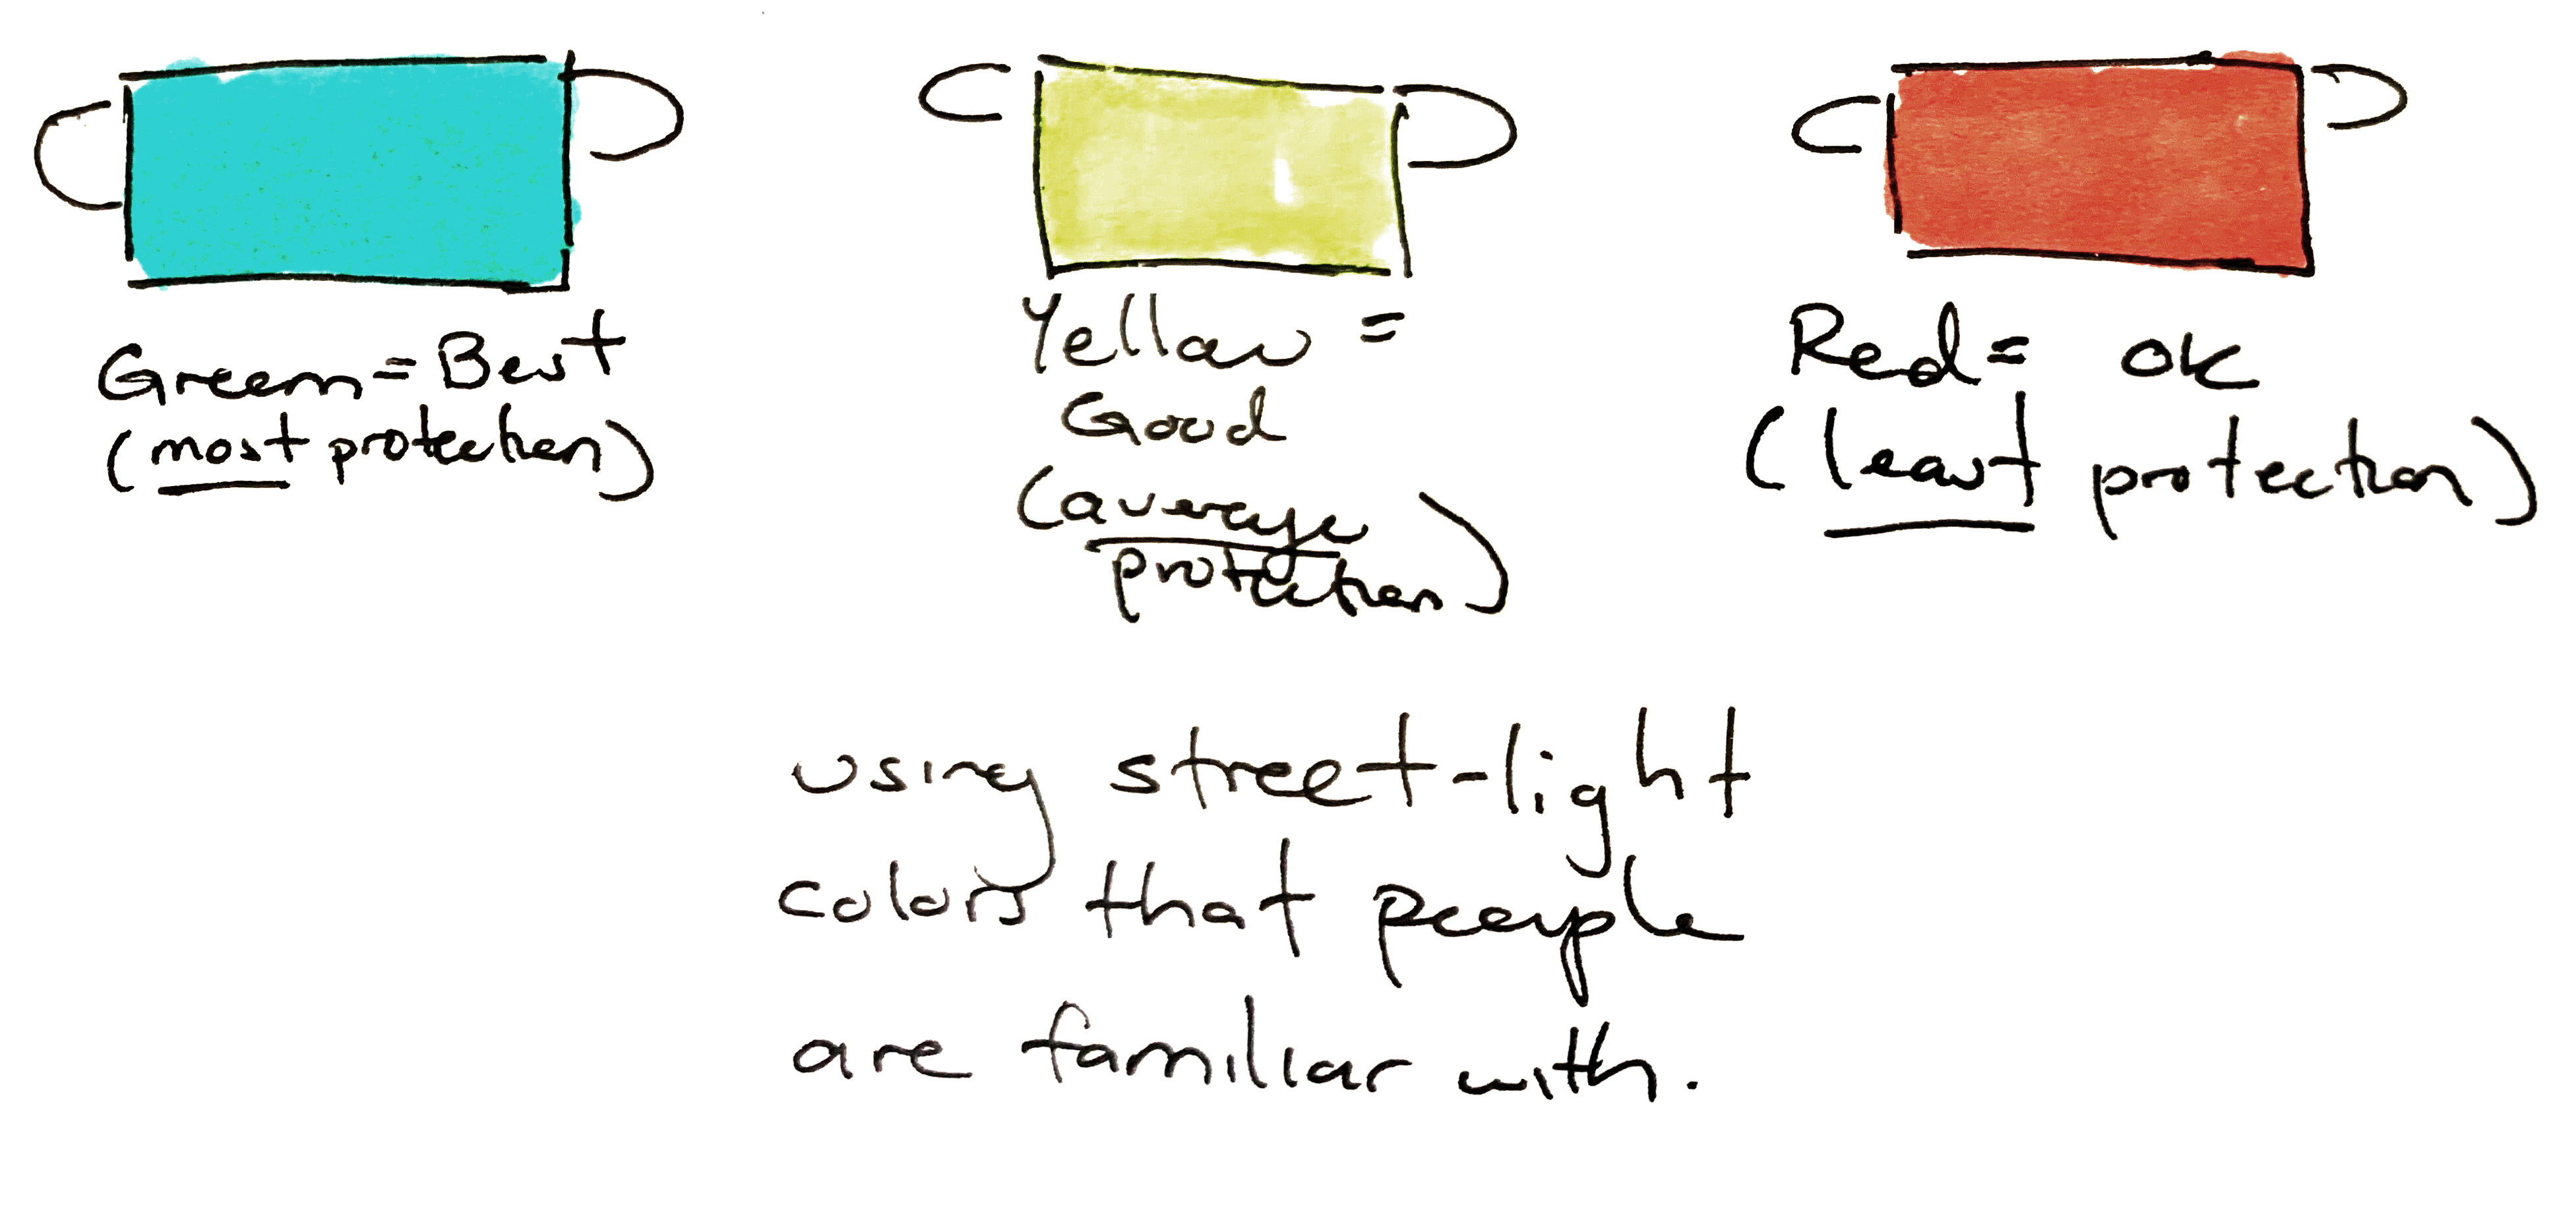 Green = Best
(most protection)
Yellow =
Good
(average
protection)
Red = OK
(least protection)
using street-light
colors that people
are familiar with.